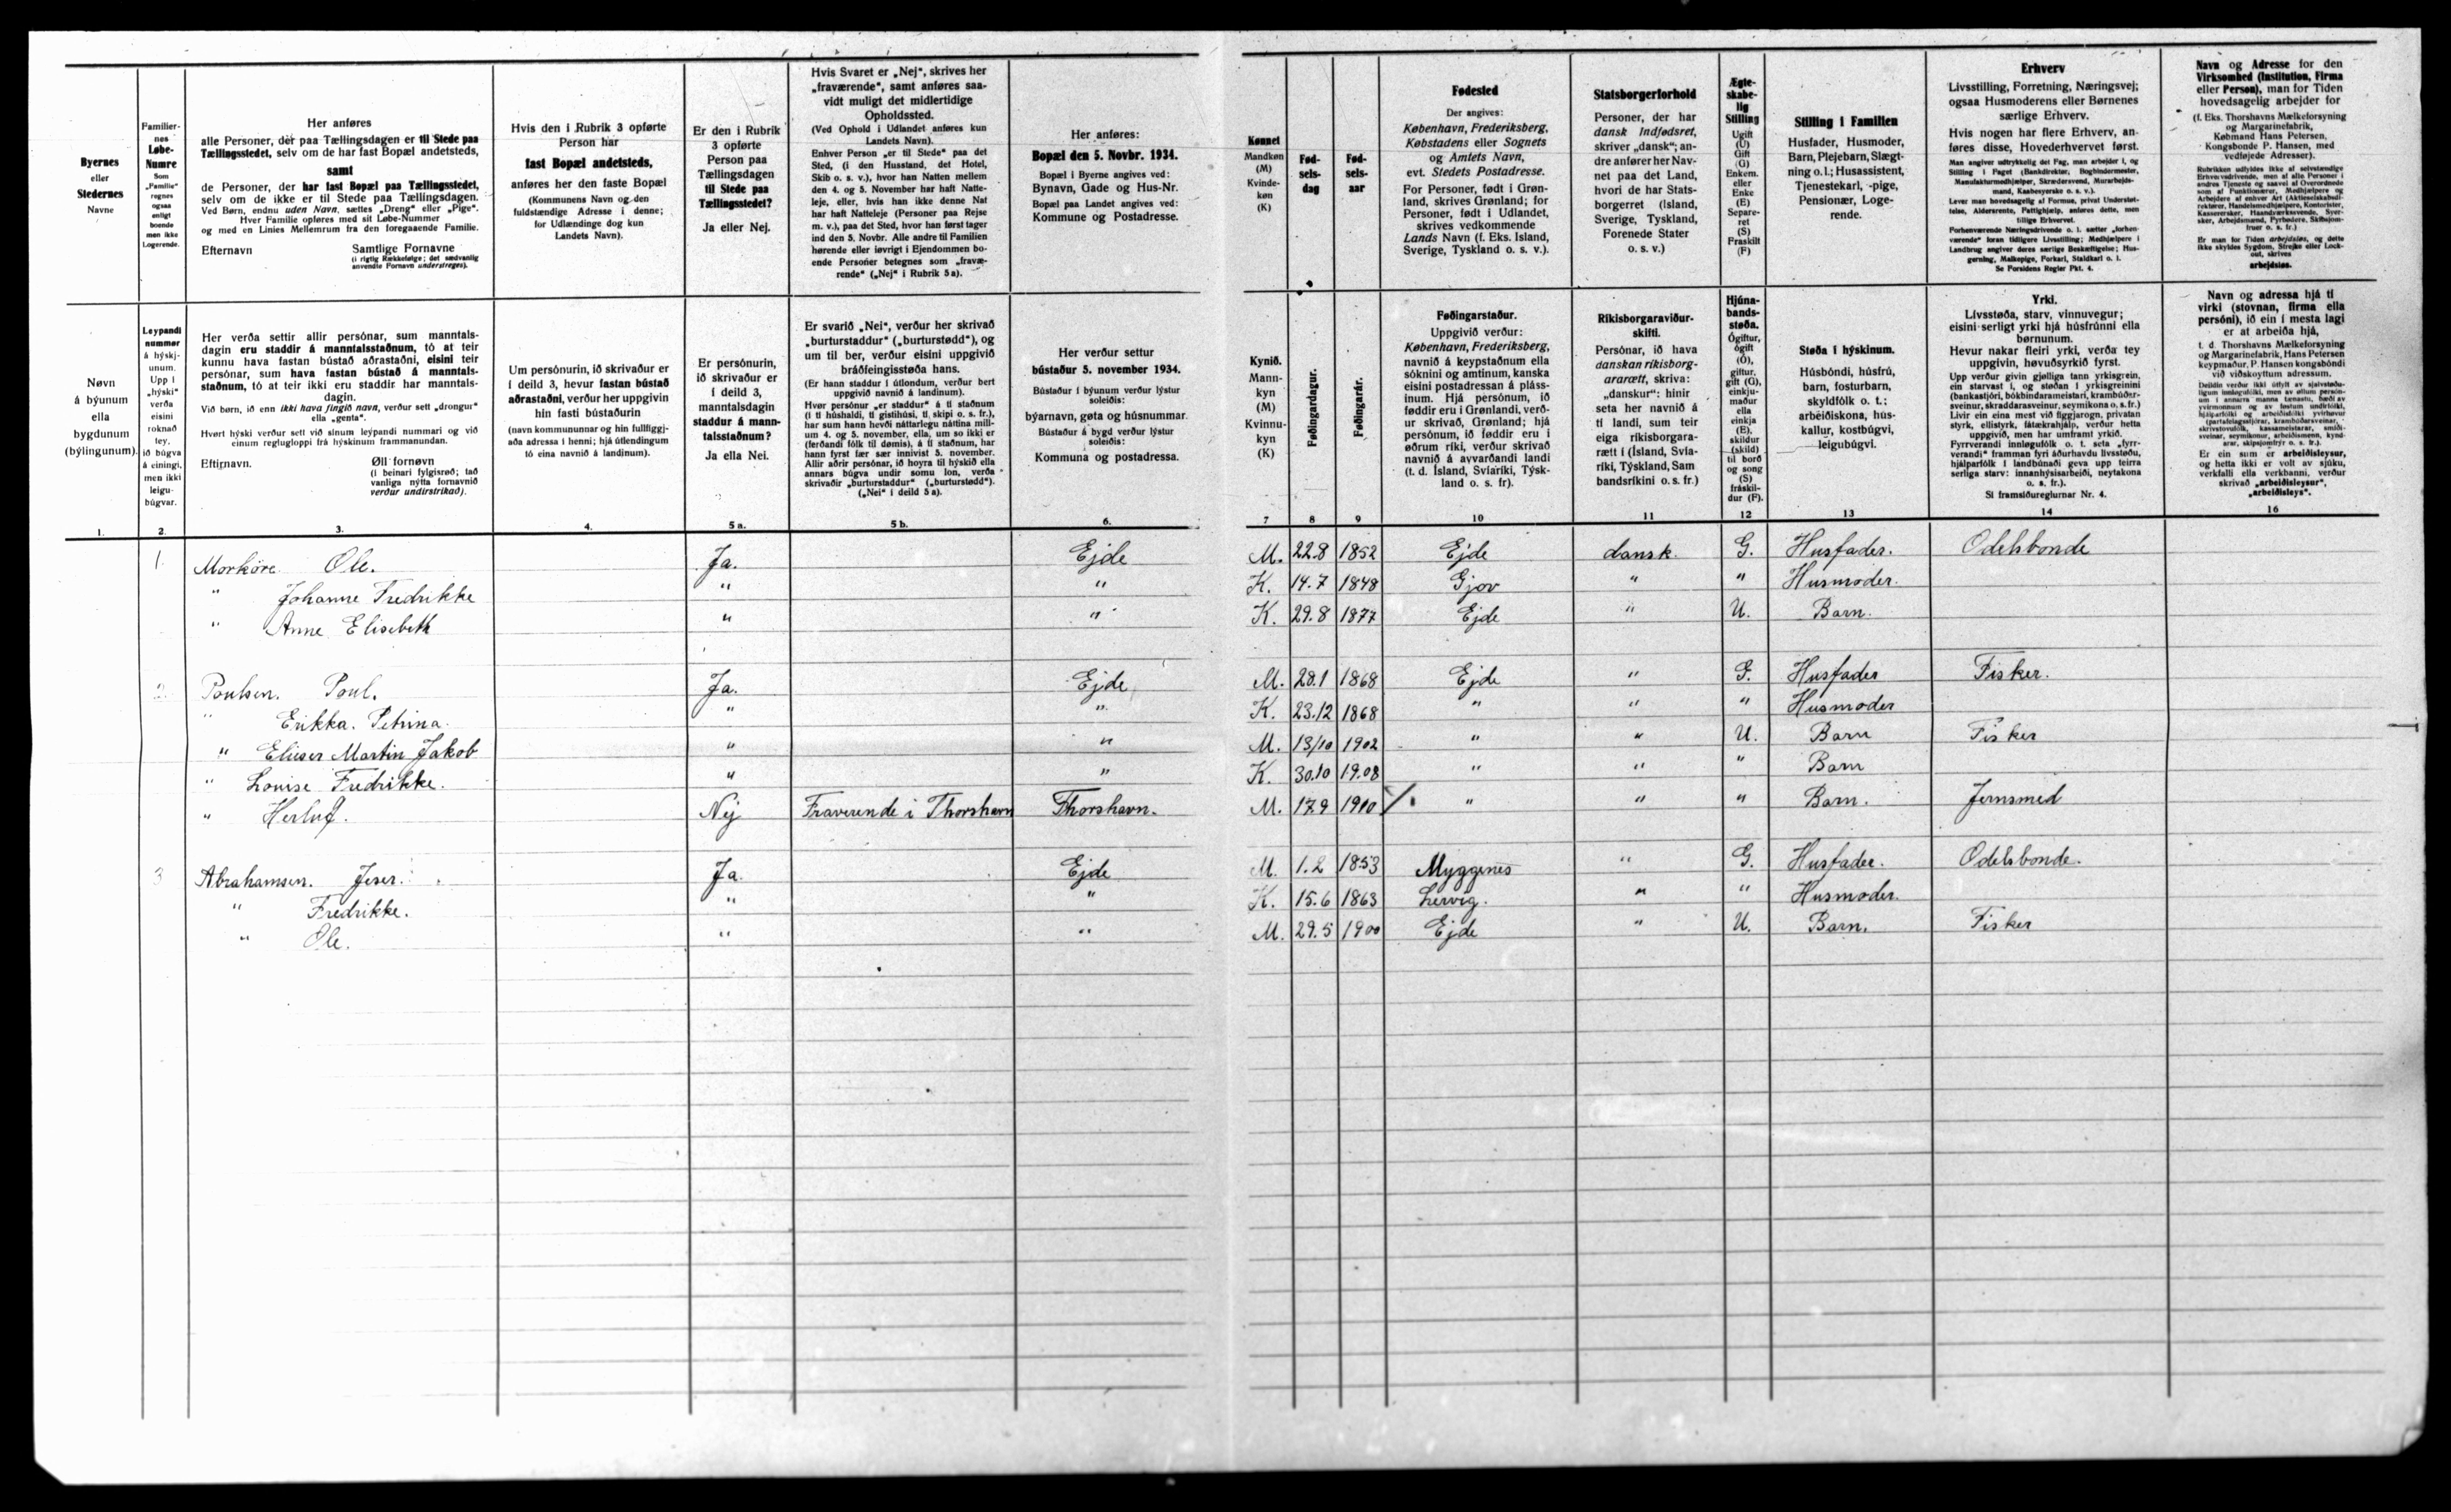 Byernes
eller
Stedernes
Navne
Familier-
nes
Løbe-
Numre
Som
„Familie“
regnes
ogsaa
enligt
boende
men ikke
Logerende.
Her anføres
alle Personer, der paa Tællingsdagen er til Stede paa
Tællingsstedet, selv om de har fast Bopæl andetsteds,
samt
de Personer, der har fast Bopæl paa Tællingsstedet,
selv om de ikke er til Stede paa Tællingsdagen.
Ved Børn, endnu uden Navn, sættes „Dreng“ eller „Pige“.
Hver Familie opføres med sit Løbe-Nummer
og med en Linies Mellemrum fra den foregaaende Familie.
Efternavn Samtlige Fornavne
(i rigtig Rækkefølge; det sædvanlig
anvendte Fornavn understreges).
Hvis den i Rubrik 3 opførte
Person har
fast Bopæl andetsteds,
anføres her den faste Bopæl
(Kommunens Navn og den
fuldstændige Adresse i denne;
for Udlændinge dog kun
Landets Navn).
Er den i Rubrik
3 opførte
Person paa
Tællingsdagen
til Stede paa
Tællingsstedet?
Ja eller Nej.
Hvis Svaret er „Nej“, skrives her
„fraværende“, samt anføres saa-
vidt muligt det midlertidige
Opholdssted.
(Ved Ophold i Udlandet anføres kun
Landets Navn).
Enhver Person „er til Stede“ paa det
Sted, (i den Husstand, det Hotel,
Skib o. s. v.), hvor han Natten mellem
den 4. og 5. November har haft Natte-
leje, eller, hvis han ikke denne Nat
har haft Natteleje (Personer paa Rejse
m. v.), paa det Sted, hvor han først tager
ind den 5. Novbr. Alle andre til Familien
hørende eller iøvrigt i Ejendommen bo-
ende Personer betegnes som „fravæ-
rende“ („Nej“ i Rubrik 5a).
Her anføres:
Bopæl den 5. Novbr. 1934.
Bopæl i Byerne angives ved:
Bynavn, Gade og Hus-Nr.
Bopæl paa Landet angives ved:
Kommune og Postadresse.
Kønnet
Mandkøn
(M)
Kvinde-
køn
(K)
Fød-
sels-
dag
Fød-
sels-
aar
Fødested
Der angives:
København, Frederiksberg,
Købstadens eller Sognets
og Amtets Navn,
evt. Stedets Postadresse.
For Personer, født i Grøn-
land, skrives Grønland; for
Personer, født i Udlandet,
skrives vedkommende
Lands Navn (f. Eks. Island,
Sverige, Tyskland o. s. v.).
Statsborgerforhold
Personer, der har
dansk Indfødsret,
skriver „dansk“; an-
dre anfører her Nav-
net paa det Land,
hvori de har Stats-
borgerret (Island,
Sverige, Tyskland,
Forenede Stater
o. s. v.)
Ægte-
skabe-
lig
Stilling
Ugift
(U)
Gift
(G)
Enkem.
eller
Enke
(E)
Separe-
ret
(S)
Fraskilt
(F)
Stilling i Familien
Husfader, Husmoder,
Barn, Plejebarn, Slægt-
ning o. l.; Husassistent,
Tjenestekarl, -pige,
Pensionær, Loge-
rende.
Erhverv
Livsstilling, Forretning, Næringsvej;
ogsaa Husmoderens eller Børnenes
særlige Erhverv.
Hvis nogen har flere Erhverv, an-
føres disse, Hovederhvervet først.
Man angiver udtrykkelig det Fag, man arbejder i, og
Stilling i Faget (Bankdirektør, Bogbindermester,
Manufakturmedhjælper, Skrædersvend, Murarbejds-
mand, Kaabesyerske o. s. v.).
Lever man hovedsagelig af Formue, privat Understøt-
telse, Aldersrente, Fattighjælp, anføres dette, men
tillige Erhvervet.
Forhenværende Næringsdrivende o. l. sætter „forhen-
værende“ foran tidligere Livsstilling; Medhjælpere i
Landbrug angiver deres særlige Beskæftigelse; Hus-
gerning, Malkepige, Forkarl, Staldkarl o. l.
Se Forsidens Regler Pkt. 4.
Navn og Adresse for den
Virksomhed (Institution, Firma
eller Person), man for Tiden
hovedsagelig arbejder for
(f. Eks. Thorshavns Mælkeforsyning
og Margarinefabrik,
Købmand Hans Petersen,
Kongsbonde P. Hansen, med
vedføjede Adresser).
Er man for Tiden arbejdsløs, og dette
ikke skyldes Sygdom, Strejke eller Lock-
out, skrives
arbejdsløs.
Nøvn
á býunum
ella
bygdunum
(býlingunum).
Leypandi
nummør
á hýskj-
unum.
Upp í
„hýski“
verða
eisini
roknað
tey,
ið búgva
á einingi,
men ikki
leigu-
búgvar.
Her verða settir allir persónar, sum manntals-
dagin eru staddir á manntalsstaðnum, tó at teir
kunnu hava fastan bústað aðrastaðni, eisini teir
persónar, sum hava fastan bústað á manntals-
staðnum, tó at teir ikki eru staddir har manntals-
dagin.
Við børn, ið enn ikki hava fingið navn, verður sett „drongur“
ella „genta“.
Hvørt hýski verður sett við sínum leypandi nummari og við
einum reglugloppi frá hýskinum frammanundan.
Eftirnavn. Øll fornøvn
(í beinari fylgisrøð; tað
vanliga nýtta fornavnið
verður undirstrikað).
Um persónurin, ið skrivaður er
í deild 3, hevur fastan bústað
aðrastaðni, verður her uppgivin
hin fasti bústaðurin
(navn kommununnar og hin fullfíggj-
aða adressa í henni; hjá útlendingum
tó eina navnið á landinum).
Er persónurin,
ið skrivaður er
í deild 3,
manntalsdagin
staddur á mann-
talsstaðnum?
Ja ella Nei.
Er svarið „Nei“, verður her skrivað
„burturstaddur“ („burturstødd“), og
um til ber, verður eisini uppgivið
bráðfeingisstøða hans.
(Er hann staddur í útlondum, verður bert
uppgivið navnið á landinum).
Hvør persónur „er staddur“ á tí staðnum
(í tí húshaldi, tí gistihúsi, tí skipi o. s. fr.),
har sum hann hevði náttarlegu náttina mill-
um 4. og 5. november, ella, um so ikki er
(ferðandi fólk til dømis), á tí staðnum, har
hann fyrst fær sær innivist 5. november.
Allir aðrir persónar, ið hoyra til hýskið ella
annars búgva undir somu lon, verða
skrivaðir „burturstaddur“ („burturstødd“).
(„Nei“ í deild 5a).
Her verður settur
bústaður 5. november 1934.
Bústaður í býunum verður lýstur
soleiðis:
býarnavn, gøta og húsnummar.
Bústaður á bygd verður lýstur
soleiðis:
Kommuna og postadressa.
Kynið.
Mann-
kyn
(M)
Kvinnu-
kyn
(K)
Føðingardagur.
Føðingarár.
Føðingarstaður.
Uppgivið verður:
København, Frederiksberg,
navnið á keypstaðnum ella
sóknini og amtinum, kanska
eisini postadressan á pláss-
inum. Hjá persónum, ið
føddir eru í Grønlandi, verð-
ur skrivað, Grønland; hjá
persónum, ið føddir eru í
øðrum ríki, verður skrivað
navnið á avvarðandi landi
(t. d. Ísland, Svíaríki, Týsk-
land o. s. fr).
Ríkisborgaraviður-
skifti.
Persónar, ið hava
danskan ríkisborg-
ararætt, skriva:
„danskur“: hinir
seta her navnið á
tí landi, sum teir
eiga ríkisborgara-
rætt í (Ísland, Svía-
ríki, Týskland, Sam
bandsríkini o. s. fr.)
Hjúna-
bands-
støða.
Ógiftur,
ógift
(Ó),
giftur,
gift (G),
einkju-
maður
ella
einkja
(E),
skildur
(skild)
til borð
og song
(S)
fráskil-
dur (F).
Støða í hýskinum.
Húsbóndi, húsfrú,
barn, fosturbarn,
skyldfólk o. t.;
arbeiðiskona, hús-
kallur, kostbúgvi,
leigubúgvi.
Yrki.
Lívsstøða, starv, vinnuvegur;
eisini serligt yrki hjá húsfrúnni ella
børnunum.
Hevur nakar fleiri yrki, verða tey
uppgivin, høvuðsyrkið fyrst.
Upp verður givin gjølliga tann yrkisgrein,
ein starvast í, og støðan í yrkisgreinini
(bankastjóri, bókbindarameistari, krambúðar-
sveinur, skraddarasveinur, seymikona o. s. fr.)
Livir ein eina mest við fíggjarogn, privatan
styrk, ellistyrk, fátækrahjálp, verður hetta
uppgivið, men har umframt yrkið.
Fyrrverandi innløgufólk o. t. seta „fyrr-
verandi“ framman fyri áðurhavdu lívsstøðu,
hjálparfólk í landbúnaði geva upp teirra
serliga starv: innanhýsisarbeiði, neytakona
o. s. fr.).
Sí framsíðureglurnar Nr. 4.
Navn og adressa hjá tí
virki (stovnan, firma ella
persóni), ið ein í mesta lagi
er at arbeiða hjá,
t. d. Thorshavns Mælkeforsyning
og Margarinefabrik, Hans Petersen
keypmaður, P. Hansen kongsbóndi
við viðskoyttum adressum.
Er ein sum er arbeiðisleysur,
og hetta ikki er volt av sjúku,
verkfalli ella verkbanni, verður
skrivað „arbeiðisleysur“,
„arbeiðisleys“.
1. 2. 3. 4. 5 a. 5 b. 6. 7 8 9 10 11 12 13 14 16
1 Morköre Ole. Ja. Ejde M. 22.8 1852 Ejde dansk. G. Husfader. Odelsbonde
" Johanne Fredrikke " " K. 14.7 1848 Gjov " " Husmoder.
" Anne Elisebeth " " K. 29.8 1877 Ejde " U. Barn.
2 Poulsen. Poul. Ja. Ejde M. 28.1 1868 Ejde " G. Husfader Fisker.
" Erikka. Petrina. " " K. 23.12 1868 " " " Husmoder
" Elieser Martin Jakob " " M. 13/10 1902 " " U. Barn Fisker
" Louise Fredrikke. " " K. 30.10 1908 " " " Barn
" Herluf. Nej Fraverende i Thorshavn Thorshavn. M. 17.9 1910 " " " Barn. Jernsmed
3 Abrahamsen. Jeser. Ja. Ejde M. 1.2 1853 Myggenes " G. Husfader. Odelsbonde.
" Fredrikke. " " K. 15.6 1863 Lervig. " " Husmoder.
" Ole. " " M. 29.5 1900 Ejde " U. Barn. Fisker